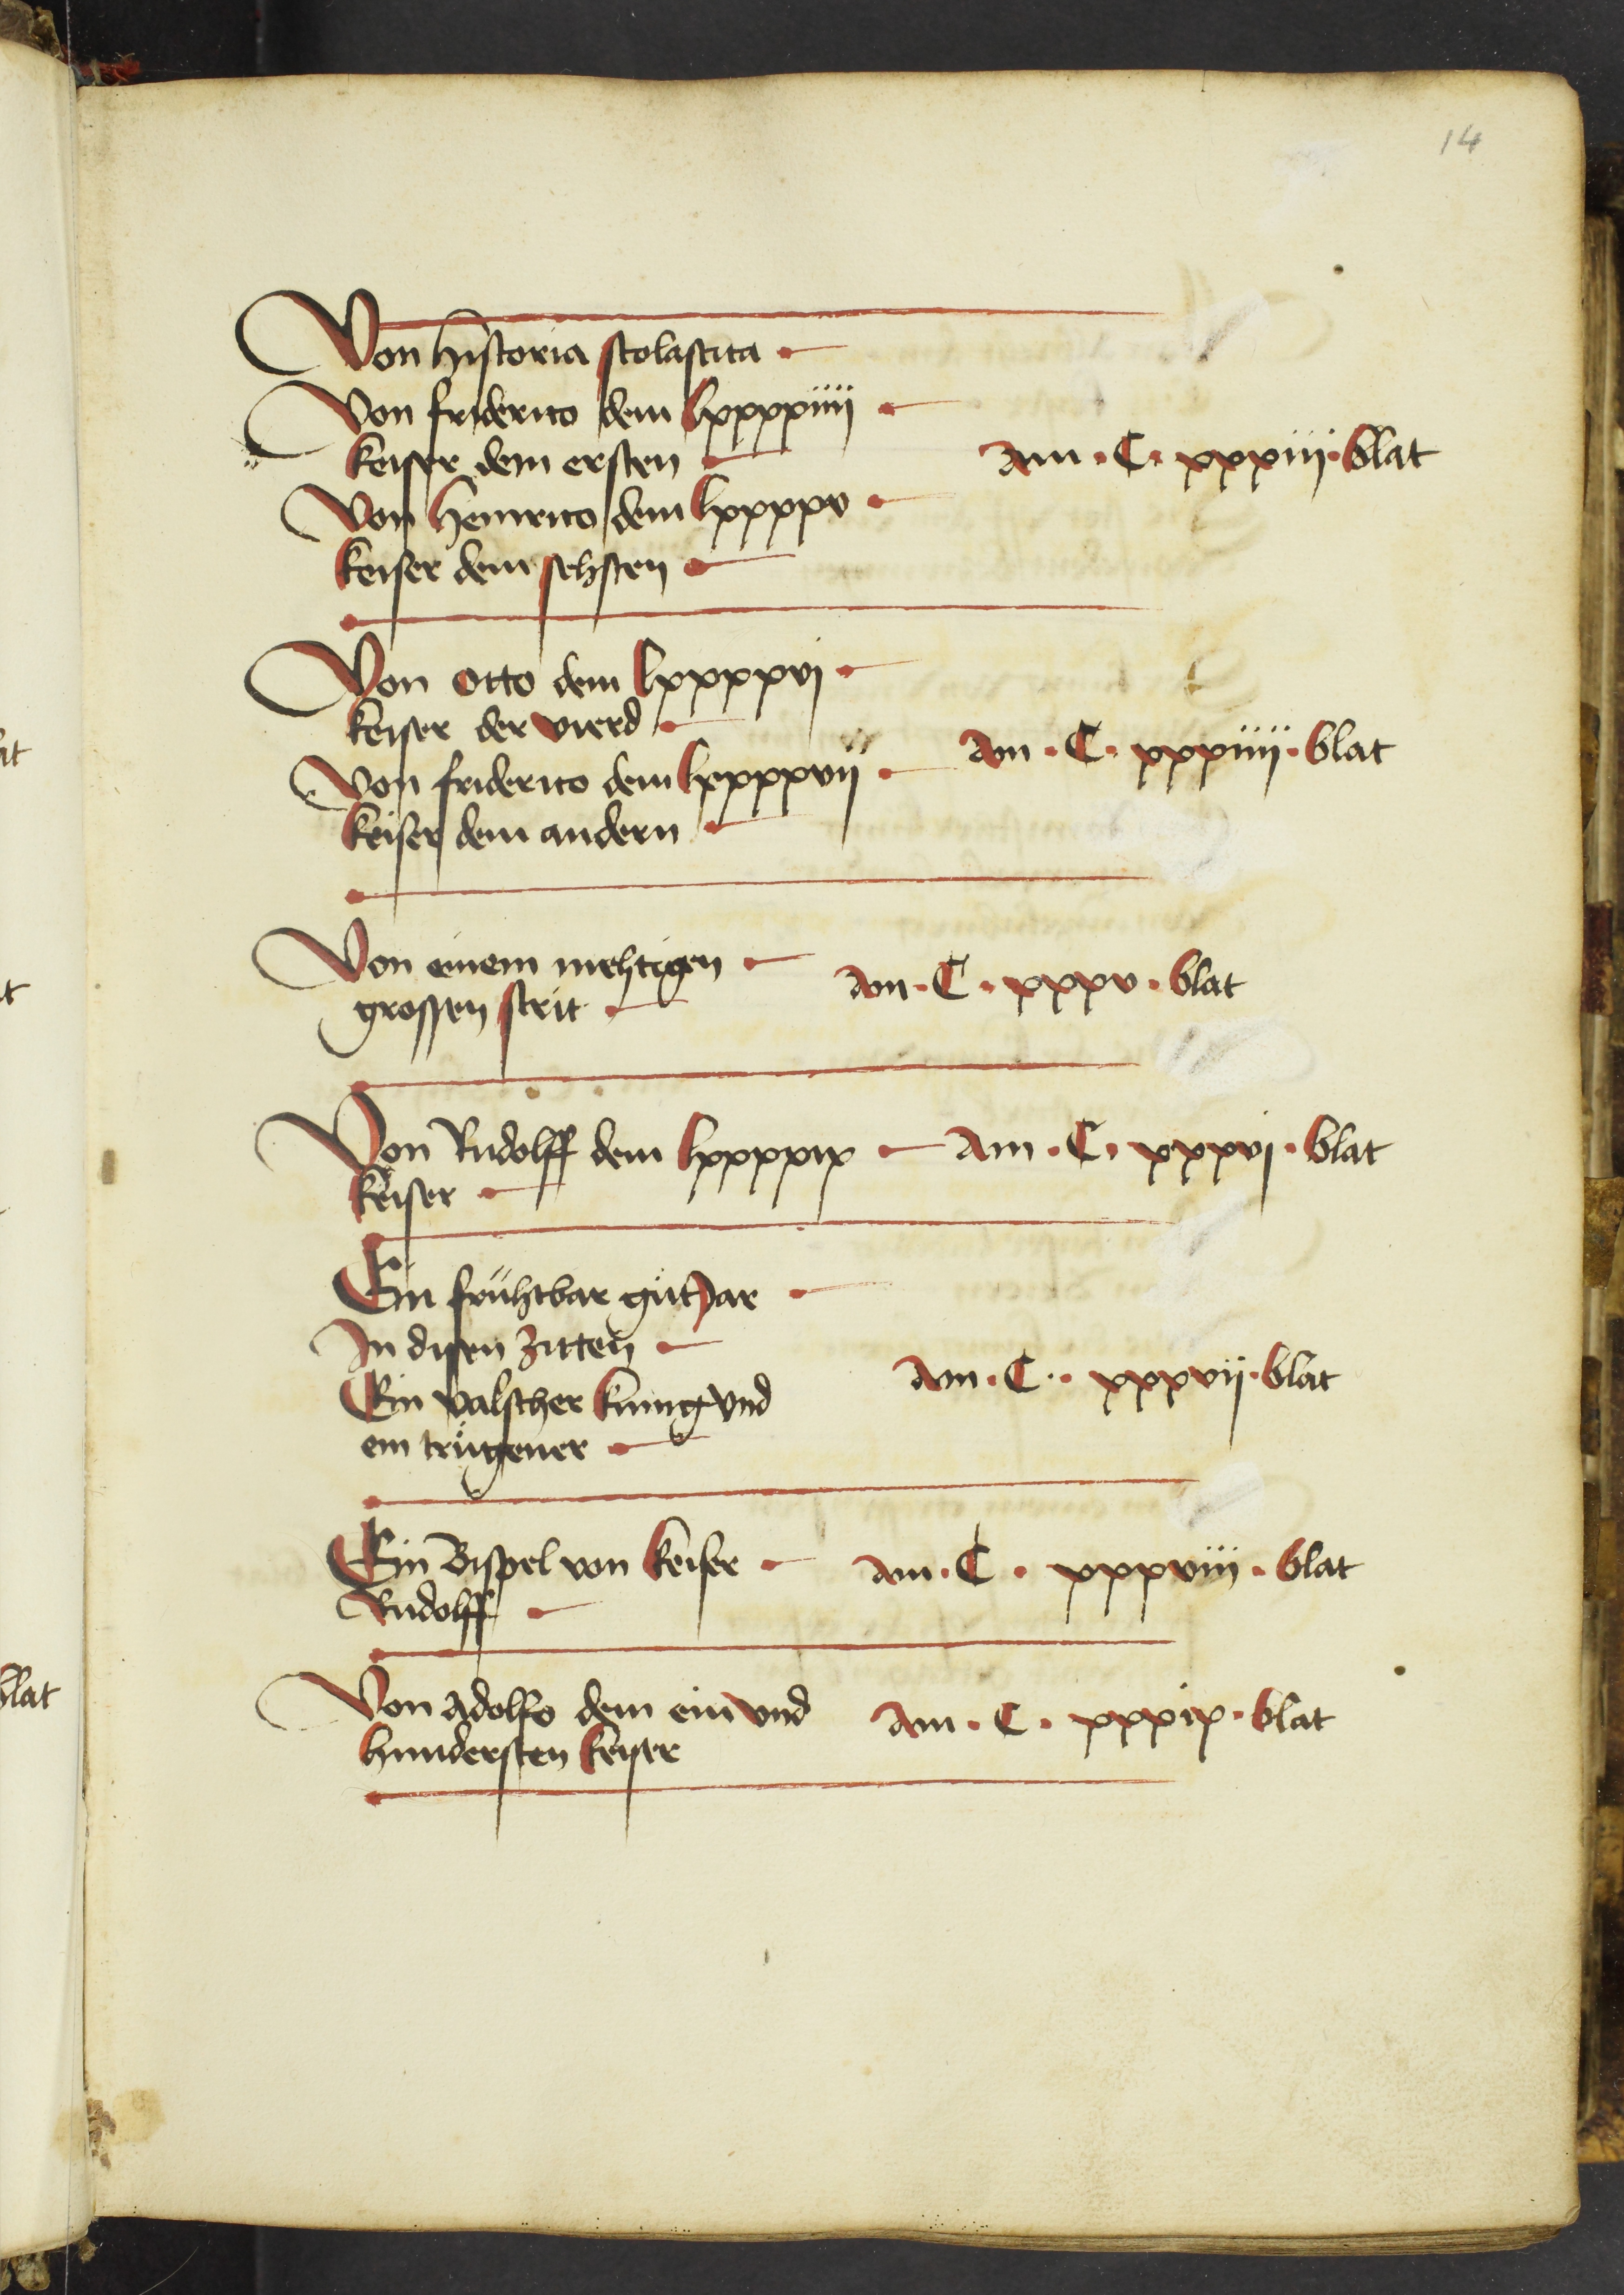 14
Von historia scolastica
Von friderico dem lxxxxiiii
keiser dem ersten
Am · C · xxxiii · blat
Von heinrico dem lxxxxv
keiser dem sehsten
Von Otto dem lxxxxvj
keiser der vierd
Von friderico dem lxxxxvij
Am · C · xxxiiij · blat
keiser dem andern
Von einem mehtigen
grossen strit
Am · C · xxxv · blat
Von Rudolff dem lxxxxix
Am · C · xxxvj · blat
keiser
Ein frühtbar gůt Jar
In disen zitten
Am · C · xxxvij · blat
Ein valscher kunig vnd
ein trügener
Ein Bispel von keiser
Am · C · xxxviii · blat
Rudolff
Von Adolfo dem ein vnd
Am · C · xxxix · blat
hundersten keiser
blat